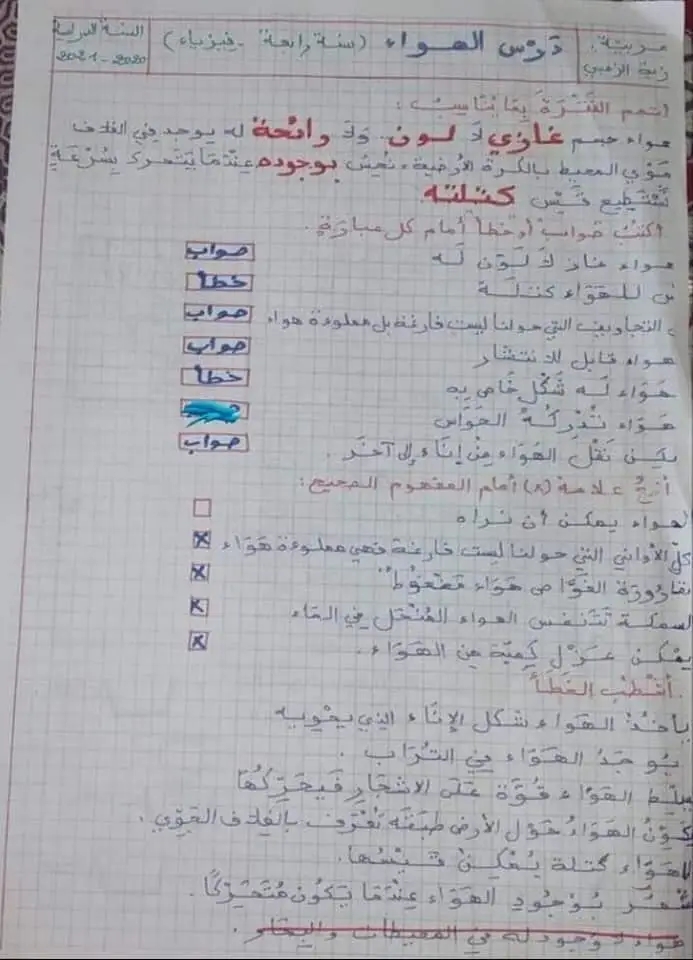 درس الهواء (سنة رابعة - فيزياء)
السنة الدراسية
2020-2021
اتمم الفقرة بما يناسب :
هواء جسم غازي لا لون و لا رائحة له يوجد في الغلاف
الجوي المحيط بالكرة الأرضية، نحس بوجوده عندما يتحرك بسرعة
نستطيع قيس كتلته
اكتب صواب أو خطأ أمام كل عبارة.
هواء غاز لا لون له صواب
للهواء كتلة خطأ
التجاويف التي حولنا ليست فارغة بل مملوءة هواء صواب
هواء قابل للانتشار صواب
هواء له شكل خاص به خطأ
هواء تدركه الحواس
يمكن نقل الهواء من إناء إلى آخر . صواب
علامة (x) أمام المفهوم الصحيح :
الهواء يمكن أن نراه
كل الأواني التي حولنا ليست فارغة فهي مملوءة هواء x
قارورة الغواص هواء مضغوط x
السمكة تتنفس الهواء المنحل في الماء x
يمكن عزل كمية من الهواء . x
أشطب الخطأ
يأخذ الهواء شكل الإناء الذي يحويه
يوجد الهواء في التراب .
يسلط الهواء قوة على الاشجار فيحركها
يكون الهواء حول الأرض طبقة تعرف بالغلاف الجوي .
للهواء كتلة يمكن قيسها.
نشعر بوجود الهواء عندما يكون متحركا.
هواء لا وجود له في المحيطات والبحار .